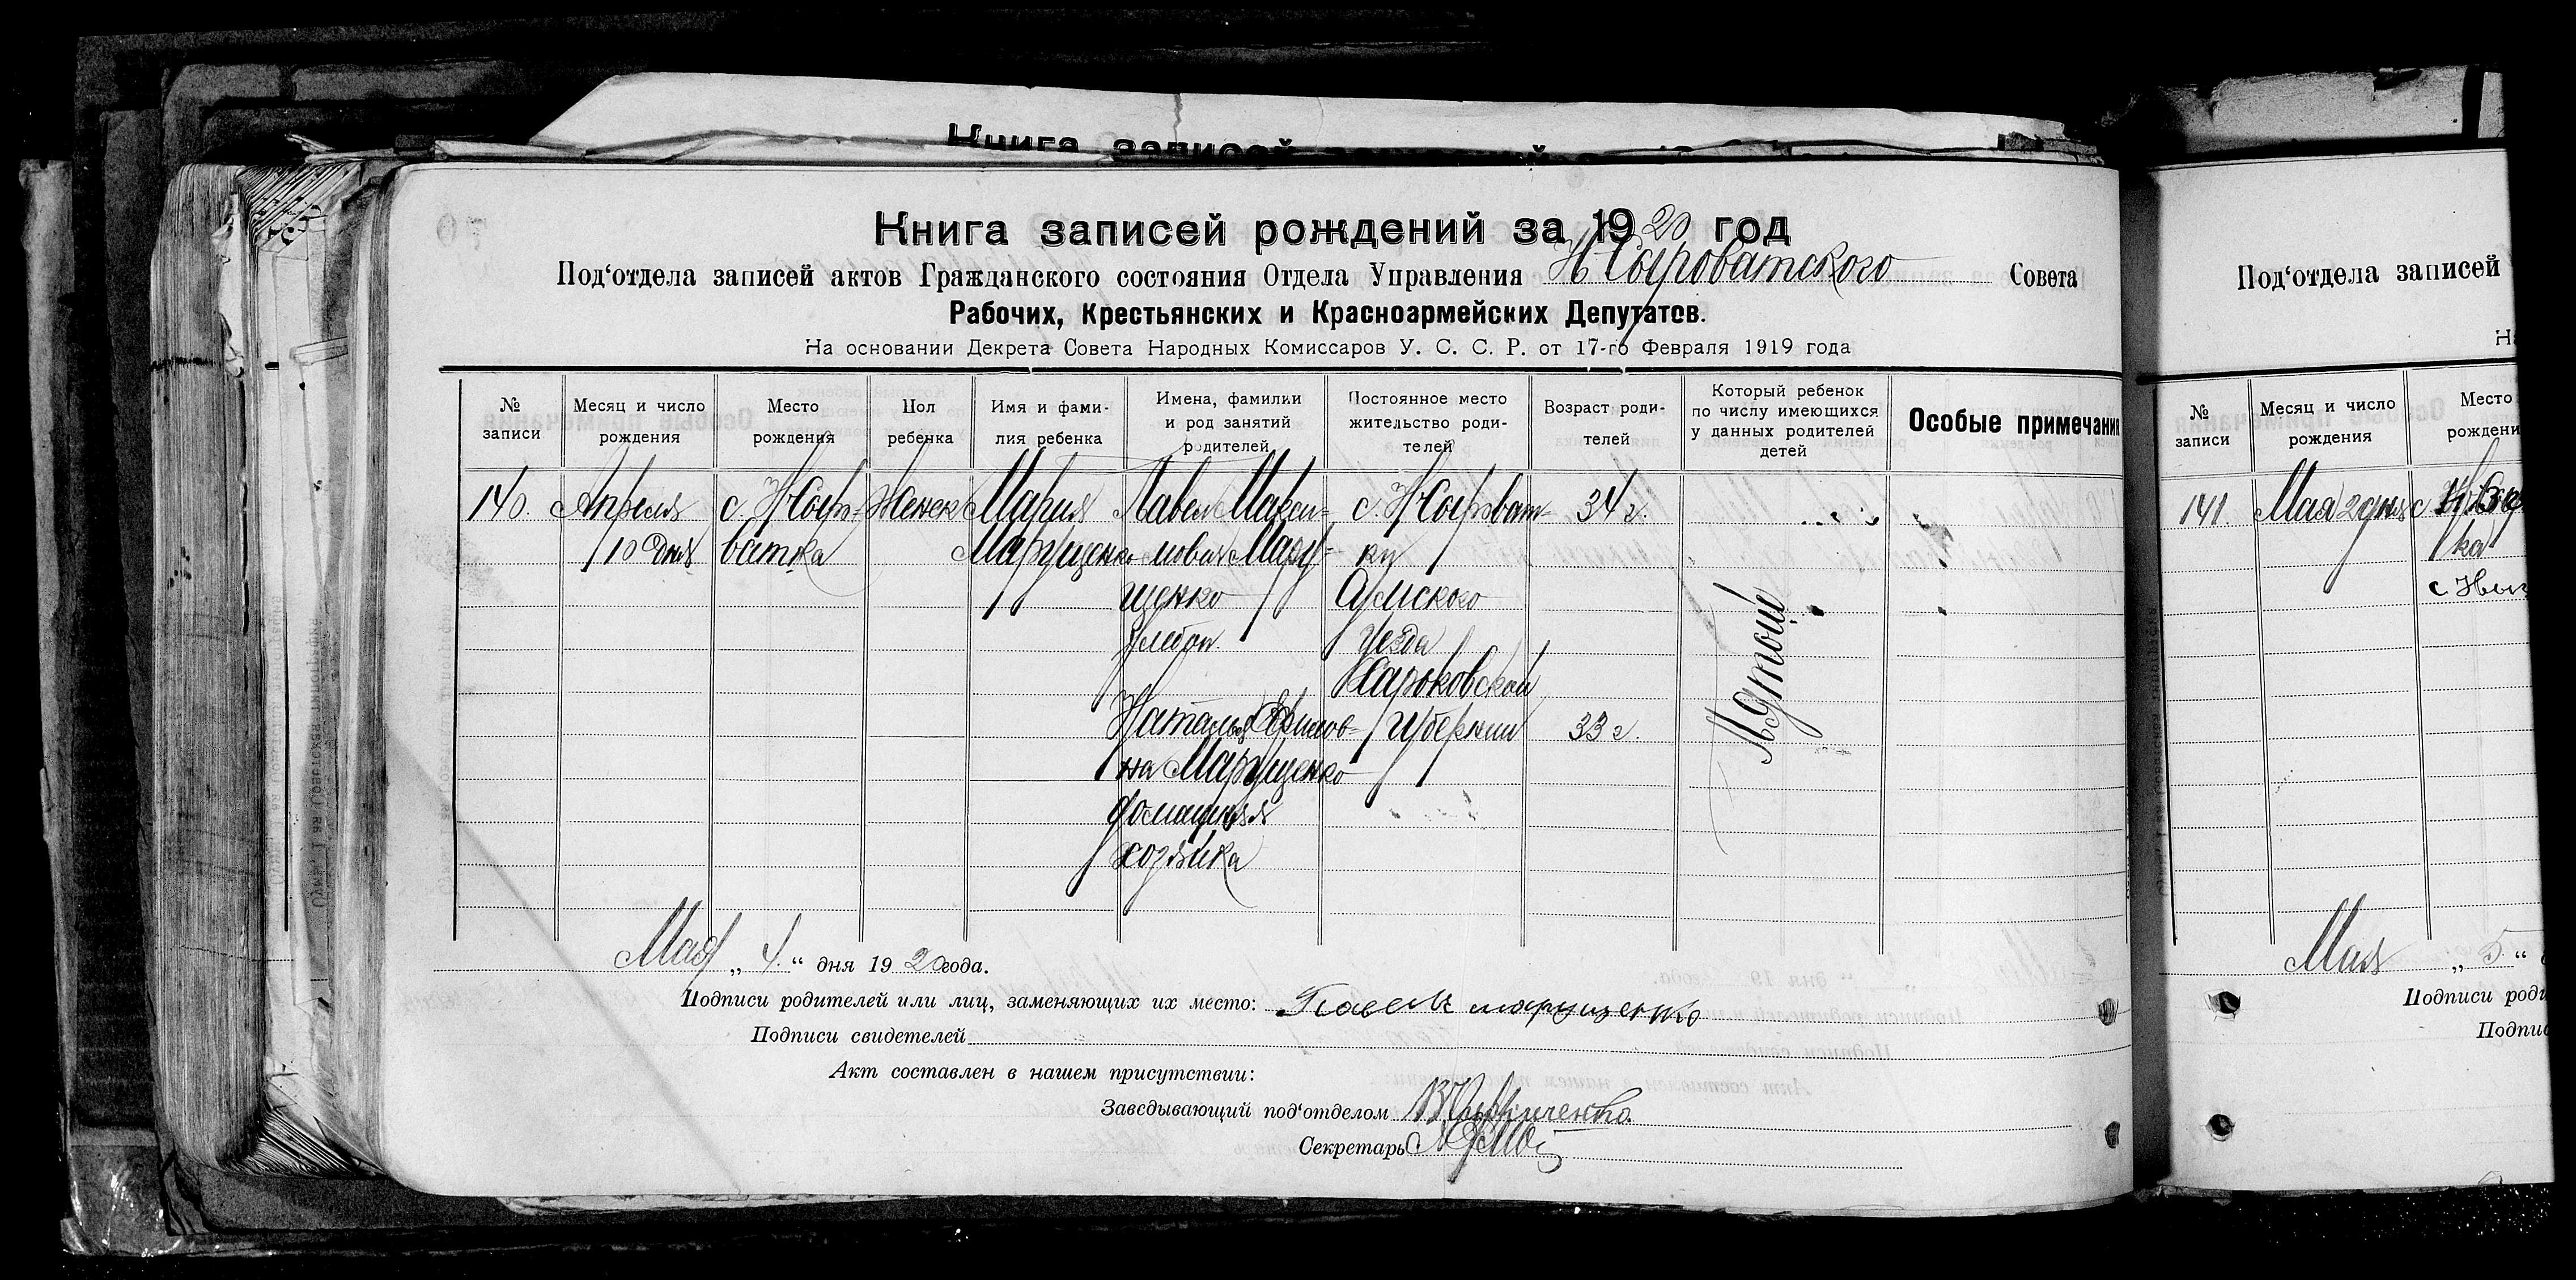 Книга записей рождений за 1920 год
Под‘отдела записей актов Гражданского состояния Отдела Управления Н Сыроватского Совета
Рабочих, Крестьянских и Красноармейских Депутатов.
На основании Декрета Совета Народных Комиссаров У. С. С. Р. от 17-го Февраля 1919 года
№ записи
Месяц и число рождения
Место рождения
Пол ребенка
Имя и фами-
лия ребенка
Имена, фамилии
и род занятий
родителей
Постоянное место
жительство роди-
телей
Возраст роди-
телей
Который ребенок
по числу имеющихся
у данных родителей
детей
Особые примечания
140.
Апреля
10 дня
с. Н Сыро-
ватка
Женск
Мария
Марущенко
Павел Макси-
мович Мару-
щенко
хлебоп.
Наталья Ефимов-
на Марущенко
домашняя
хозяйка
с. Н Сыроват-
ку
Сумского
уезда
Харьковской
губернии
34 г.
33 г.
Пятый
Мая „ 4. “ дня 1920 года.
Подписи родителей или лиц, заменяющих их место: Павелъ марущенко
Подписи свидетелей
Акт составлен в нашем присутствии:
Заведывающий под‘отделом
Секретарь
Под‘отдела записей
№ записи
Месяц и число рождения
Место
141.
Мая 2 дня
Мая „ 5 “
Подписи